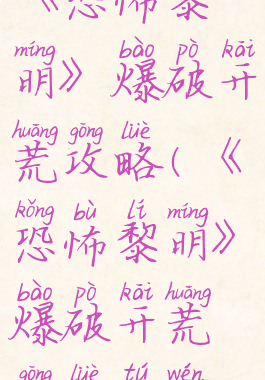 《恐怖黎
míng bào pò kāi
明》爆破开
huāng gōng lüè
荒攻略(《
kǒng bù lí míng
恐怖黎明》
bào pò kāi huāng
爆破开荒
gōng lüè tú wén